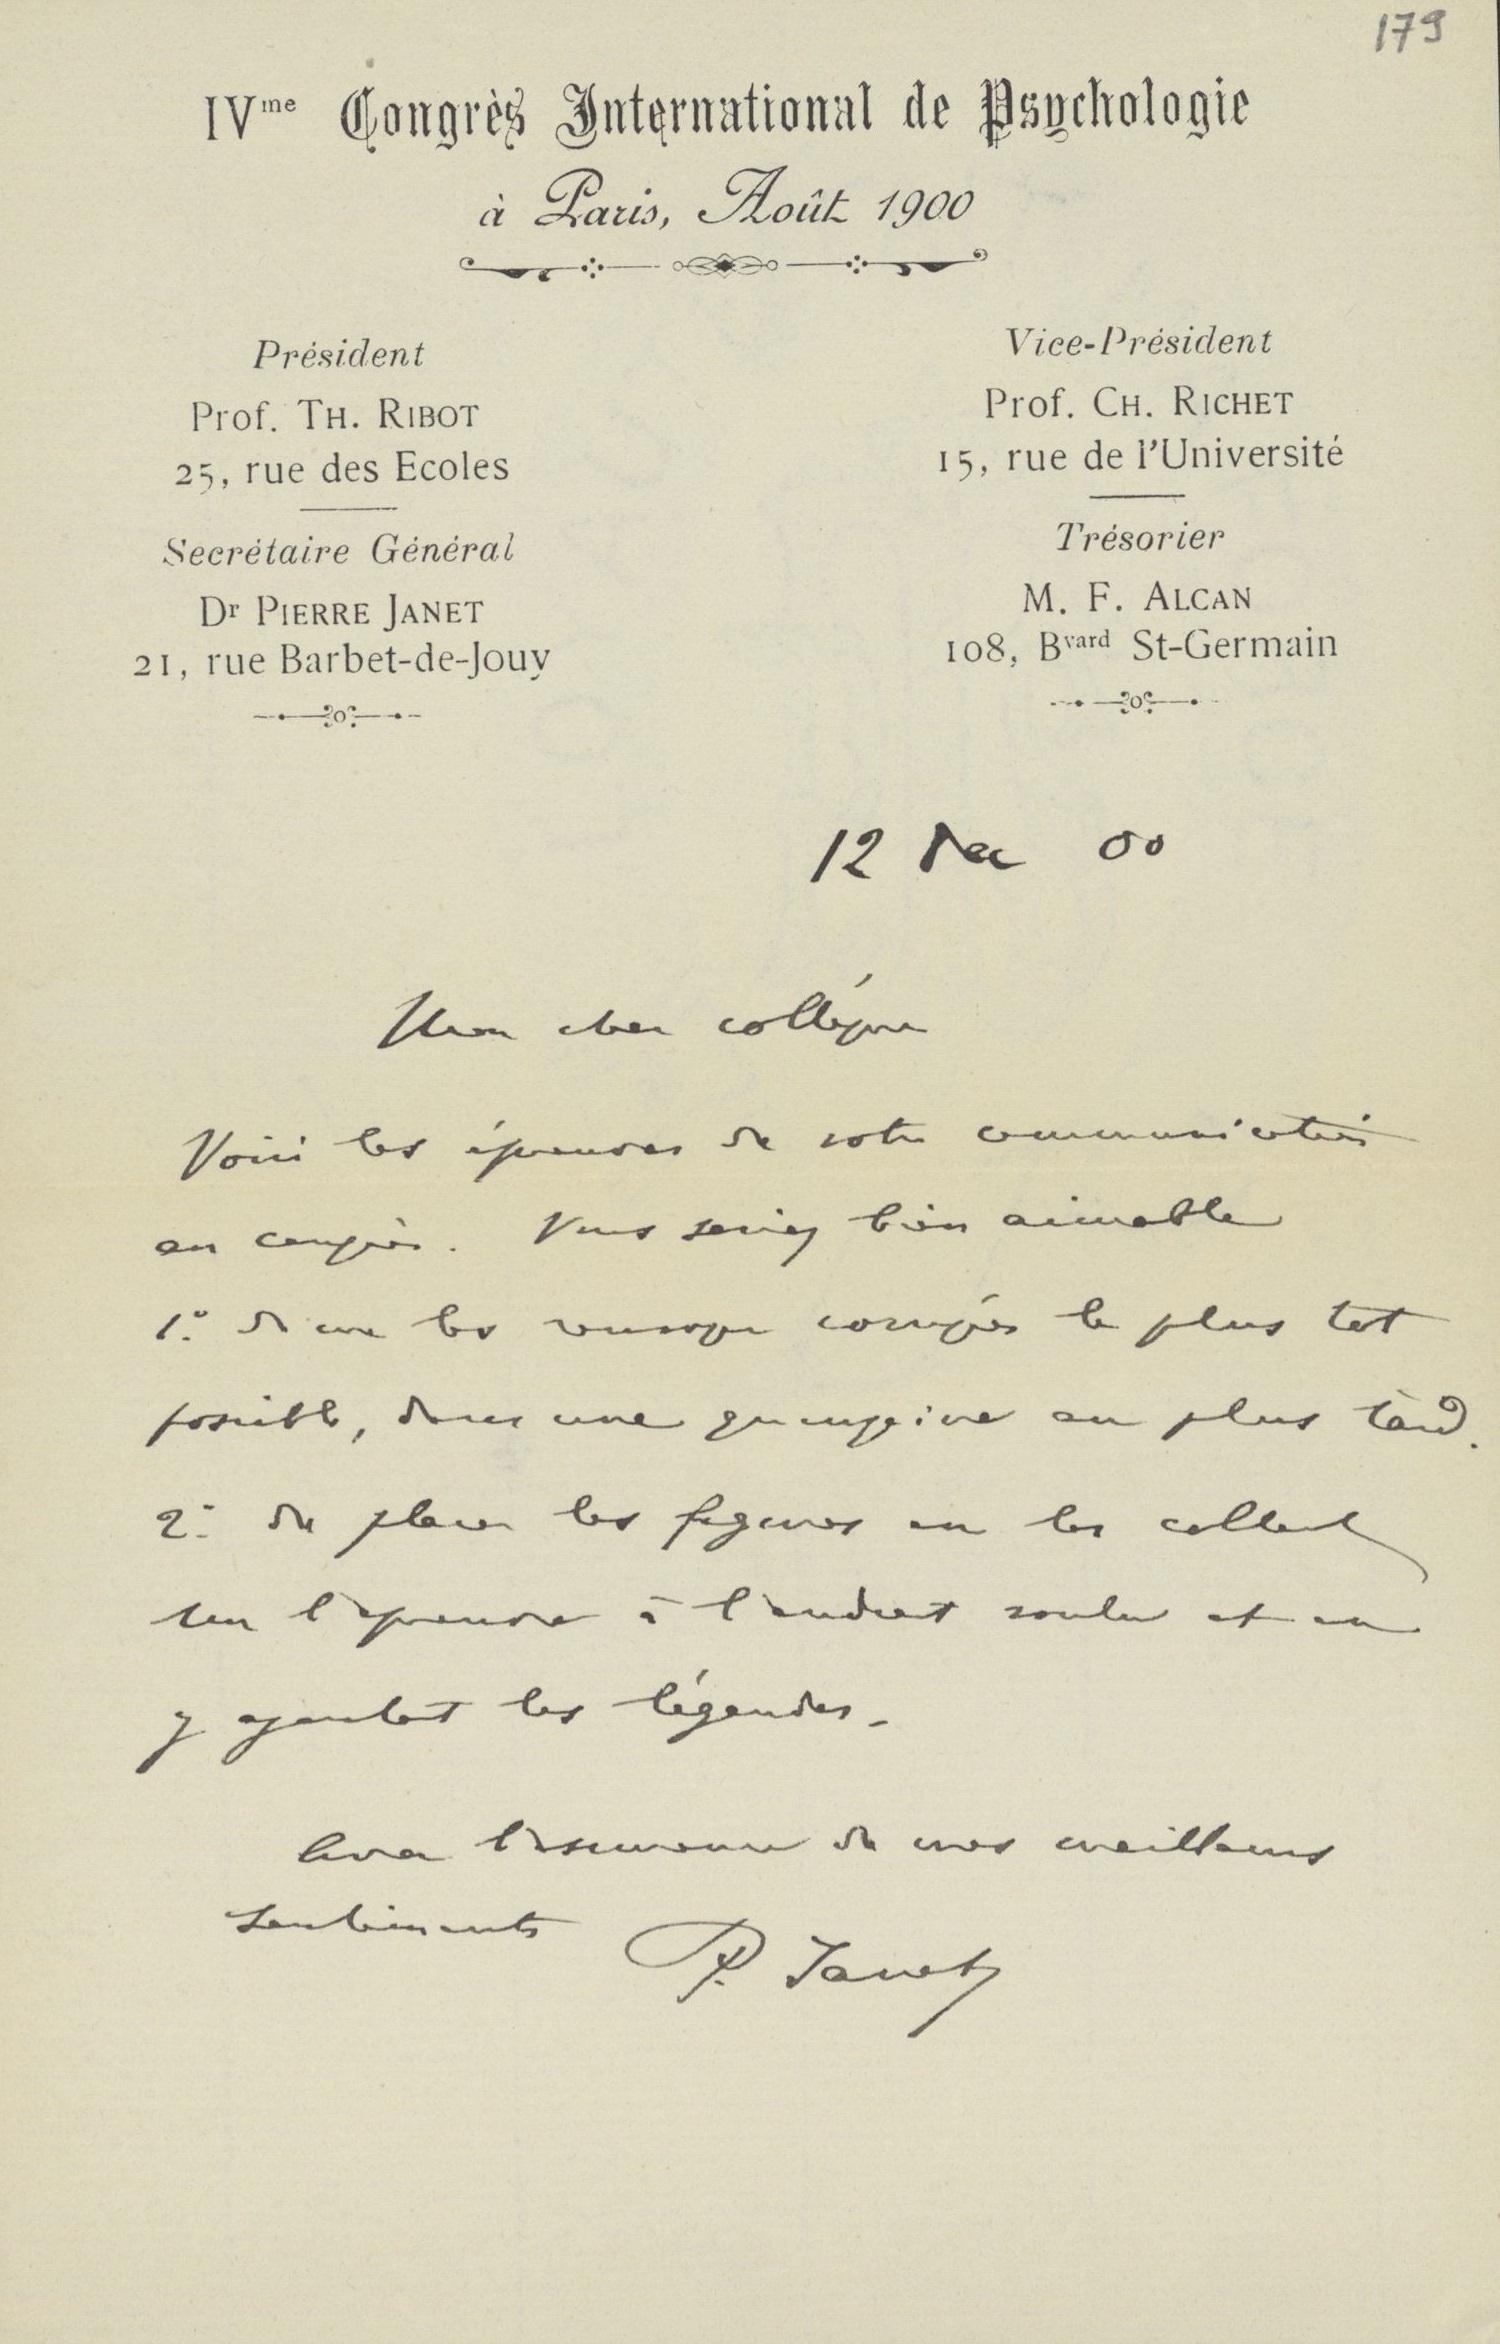 179
IVme Congrès International de Psychologie
à Paris, Août 1900
Président
Prof. TH. RIBOT
25, rue des Ecoles
Secrétaire Général
Dr PIERRE JANET
21, rue Barbet-de-Jouy
Vice-Président
Prof. CH. RICHET
15, rue de l'Université
Trésorier
M. F. ALCAN
108, Bvard St-Germain
12 Dec 00
Mon cher collègue
Voici les épreuves de votre communication
au congrès. Vous seriez bien aimable
1º de me les renvoyer corrigées le plus tot
possible, dans une quinzaine au plus tard.
2º de placer les figures en les collant
sur l'épreuve à l'endroit voulu et en
y ajoutant les légendes.
Avec l'assurance de mes meilleurs
sentiments
P. Janet